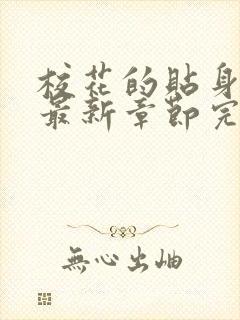 校花的貼身
最新章節完
無心出岫